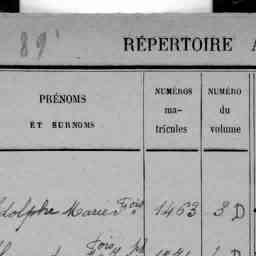 89'
RÉPERTOIRE A
PRÉNOMS
ET SURNOMS
NUMÉROS
ma-
tricules
NUMÉRO
du
volume
dolphe Marie Fois 1463 3 D
Fois